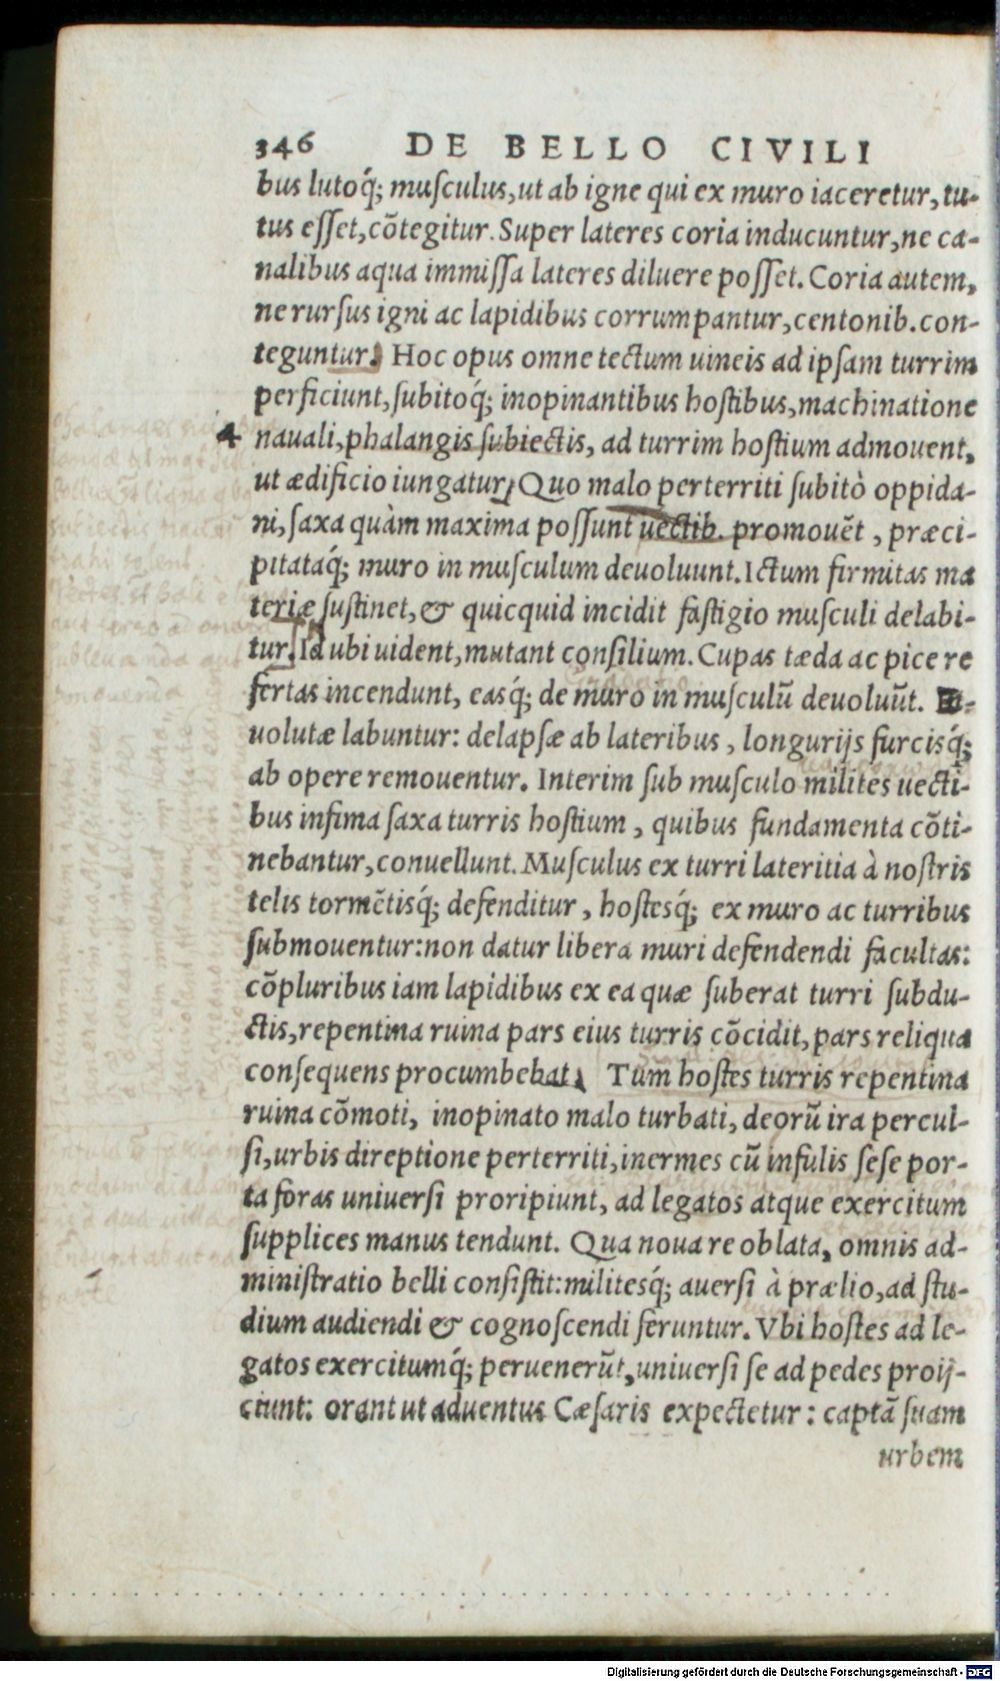 346 DE BELLO CIVILI
bus lutoq́; muſculus, ut ab igne qui ex muro iaceretur, tu-
tus eſſet, cõtegitur. Super lateres coria inducuntur, ne ca-
nalibus aqua immiſſa lateres diluere poſſet. Coria autem,
ne rurſus igni ac lapidibus corrumpantur, centonib. con-
teguntur. Hoc opus omne tectum uineis ad ipſam turrim
perficiunt, ſubitoq́; inopinantibus hoſtibus, machinatione
4 nauali, phalangis ſubiectis, ad turrim hoſtium admouent,
ut ædificio iungatur. Quo malo perterriti ſubitò oppida-
ni, ſaxa quàm maxima poſſunt uectib. promouẽt, præci-
pitataq́; muro in muſculum deuoluunt. Ictum firmitas ma
teriæ ſuſtinet, & quicquid incidit faſtigio muſculi delabi-
tur. Id ubi uident, mutant conſilium. Cupas tæda ac pice re
fertas incendunt, easq́; de muro in muſculũ deuoluũt.
uolutæ labuntur: delapſæ ab lateribus, longurijs furcisq́;
ab opere remouentur. Interim ſub muſculo milites uecti-
bus infima ſaxa turris hoſtium, quibus fundamenta cõti-
nebantur, conuellunt. Muſculus ex turri lateritia à noſtris
telis tormẽtisq́; defenditur, hoſtesq́; ex muro ac turribus
ſubmouentur: non datur libera muri defendendi facultas:
cõpluribus iam lapidibus ex ea quæ ſuberat turri ſubdu-
ctis, repentina ruina pars eius turris cõcidit, pars reliqua
conſequens procumbebat. Tum hoſtes turris repentina
ruina cõmoti, inopinato malo turbati, deorũ ira percul-
ſi, urbis direptione perterriti, inermes cũ infulis ſeſe por-
ta foras uniuerſi proripiunt, ad legatos atque exercitum
ſupplices manus tendunt. Qua noua re oblata, omnis ad-
miniſtratio belli conſiſtit: militesq́; auerſi à prælio, ad ſtu-
dium audiendi & cognoſcendi feruntur. Vbi hoſtes ad le-
gatos exercitumq́; peruenerũt, uniuerſi ſe ad pedes proij-
ciunt: orant ut aduentus Cæſaris expectetur: captã ſuam
urbem
Digitalisierung gefördert durch die Deutsche Forschungsgemeinschaft - DFG